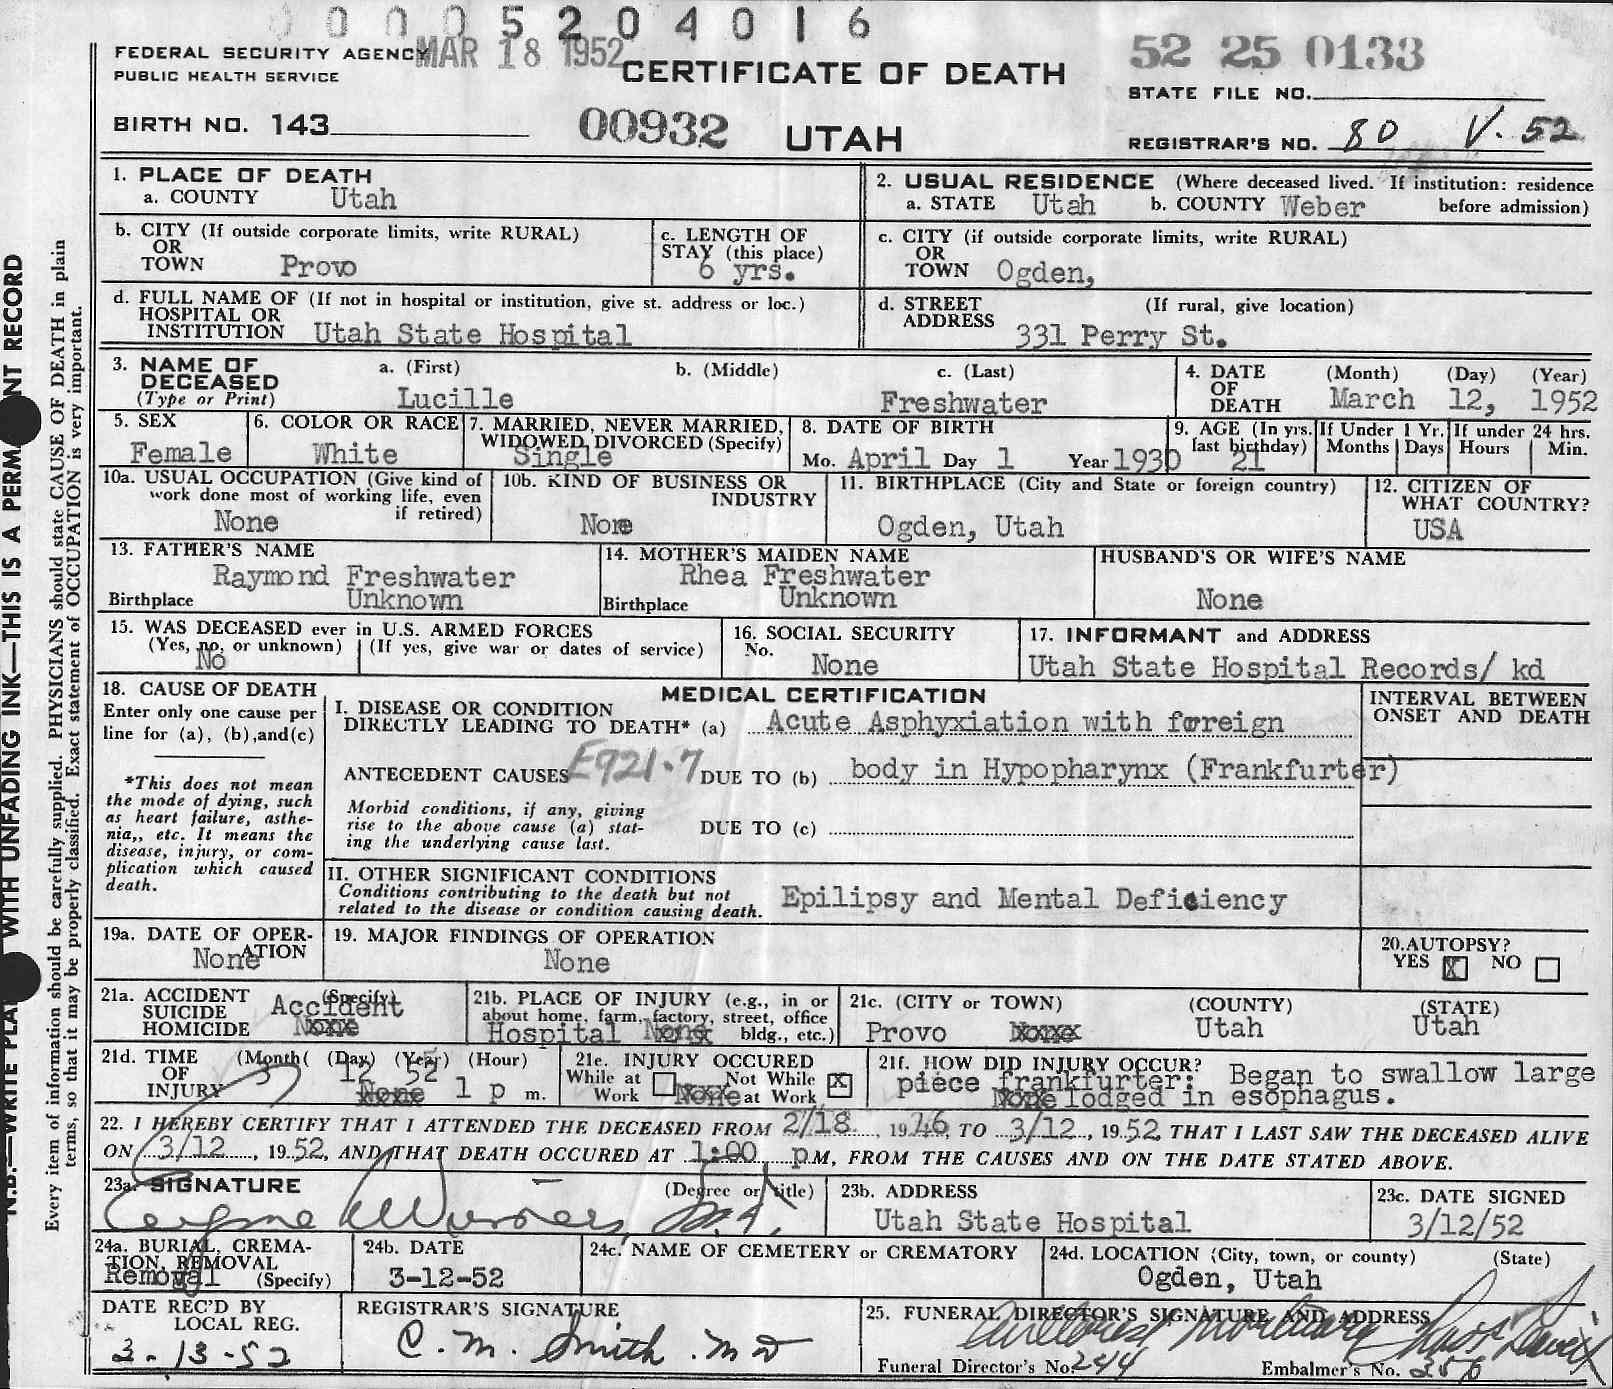 0 0 0 5 2 0 4 0 1 6
FEDERAL SECURITY AGENCY
MAR 18 1952
PUBLIC HEALTH SERVICE
CERTIFICATE OF DEATH
52 25 0133
STATE FILE NO.
BIRTH NO. 143
00932 UTAH
REGISTRAR'S NO. 80 V. 52
1. PLACE OF DEATH
a. COUNTY Utah
2. USUAL RESIDENCE (Where deceased lived. If institution: residence
a. STATE Utah b. COUNTY Weber before admission)
b. CITY (If outside corporate limits, write RURAL)
OR
TOWN Provo
c. LENGTH OF
STAY (this place)
6 yrs.
c. CITY (if outside corporate limits, write RURAL)
OR
TOWN Ogden,
d. FULL NAME OF (If not in hospital or institution, give st. address or loc.)
HOSPITAL OR
INSTITUTION Utah State Hospital
d. STREET (If rural, give location)
ADDRESS 331 Perry St.
3. NAME OF
DECEASED
(Type or Print)
a. (First) b. (Middle) c. (Last)
Lucille Freshwater
4. DATE (Month) (Day) (Year)
OF
DEATH March 12, 1952
5. SEX
Female
6. COLOR OR RACE
White
7. MARRIED, NEVER MARRIED,
WIDOWED, DIVORCED (Specify)
Single
8. DATE OF BIRTH
Mo. April Day 1 Year 1930
9. AGE (In yrs.
last birthday)
21
If Under 1 Yr.
Months Days
If under 24 hrs.
Hours Min.
10a. USUAL OCCUPATION (Give kind of
work done most of working life, even
if retired)
None
10b. KIND OF BUSINESS OR
INDUSTRY
None
11. BIRTHPLACE (City and State or foreign country)
Ogden, Utah
12. CITIZEN OF
WHAT COUNTRY?
USA
13. FATHER'S NAME
Raymond Freshwater
Birthplace Unknown
14. MOTHER'S MAIDEN NAME
Rhea Freshwater
Birthplace Unknown
HUSBAND'S OR WIFE'S NAME
None
15. WAS DECEASED ever in U.S. ARMED FORCES
(Yes, no, or unknown) (If yes, give war or dates of service)
No
16. SOCIAL SECURITY
No.
None
17. INFORMANT and ADDRESS
Utah State Hospital Records/ kd
18. CAUSE OF DEATH
Enter only one cause per
line for (a), (b),and(c)
*This does not mean
the mode of dying, such
as heart failure, asthe-
nia,, etc. It means the
disease, injury, or com-
plication which caused
death.
MEDICAL CERTIFICATION
I. DISEASE OR CONDITION
DIRECTLY LEADING TO DEATH* (a) Acute Asphyxiation with foreign
ANTECEDENT CAUSES E921.7 DUE TO (b) body in Hypopharynx (Frankfurter)
Morbid conditions, if any, giving
rise to the above cause (a) stat-
ing the underlying cause last.
DUE TO (c)
INTERVAL BETWEEN
ONSET AND DEATH
II. OTHER SIGNIFICANT CONDITIONS
Conditions contributing to the death but not
related to the disease or condition causing death.
Epilipsy and Mental Deficiency
19a. DATE OF OPER-
ATION
None
19. MAJOR FINDINGS OF OPERATION
None
20.AUTOPSY?
YES X NO
21a. ACCIDENT (Specify)
SUICIDE
HOMICIDE
Accident
None
21b. PLACE OF INJURY (e.g., in or
about home, farm, factory, street, office
bldg., etc.)
Hospital None
21c. (CITY or TOWN) (COUNTY) (STATE)
Provo None Utah Utah
21d. TIME (Month( (Day) (Year) (Hour)
OF
INJURY 3 12 52 None 1 p m.
21e. INJURY OCCURED
While at Work None Not While at Work X
21f. HOW DID INJURY OCCUR? Began to swallow large
piece frankfurter: None lodged in esophagus.
22. I HEREBY CERTIFY THAT I ATTENDED THE DECEASED FROM 2/18, 1946, TO 3/12, 1952, THAT I LAST SAW THE DECEASED ALIVE
ON 3/12, 1952, AND THAT DEATH OCCURED AT 1:00 p.M, FROM THE CAUSES AND ON THE DATE STATED ABOVE.
23a. SIGNATURE (Degree or title)
M.D.
23b. ADDRESS
Utah State Hospital
23c. DATE SIGNED
3/12/52
24a. BURIAL, CREMA-
TION, REMOVAL
Removal (Specify)
24b. DATE
3-12-52
24c. NAME OF CEMETERY or CREMATORY
24d. LOCATION (City, town, or county) (State)
Ogden, Utah
DATE REC'D BY
LOCAL REG.
3-13-52
REGISTRAR'S SIGNATURE
C. M. Smith. MD
25. FUNERAL DIRECTOR'S SIGNATURE AND ADDRESS
Mortuary
Funeral Director's No. 244 Embalmer's No.
WITH UNFADING INK—THIS IS A PERM NT RECORD
N.B.—WRITE PLA
Every item of information should be carefully supplied. PHYSICIANS should state CAUSE OF DEATH in plain
terms, so that it may be properly classified. Exact statement of OCCUPATION is very important.